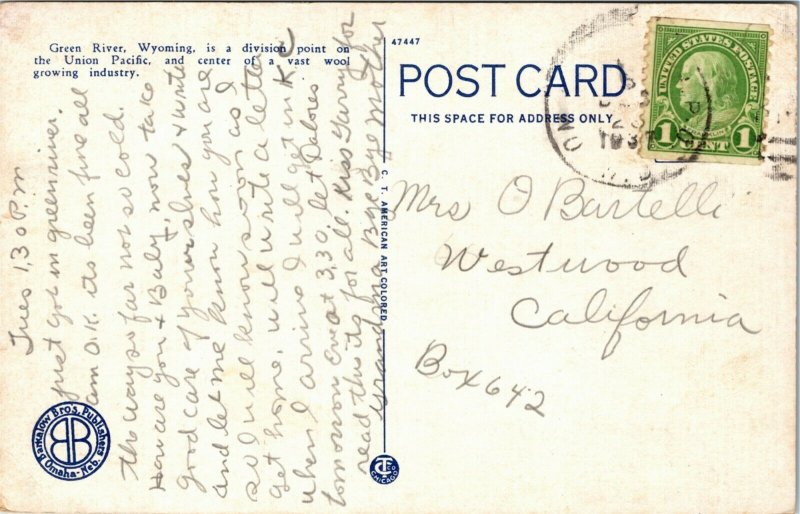 Green River, Wyoming, is a division point on
the Union Pacific, and center of a vast wool
growing industry.
47447
POST CARD
THIS SPACE FOR ADDRESS ONLY
UNITED STATES POSTAGE
1 CENT 1
23
193
Tues 1,30 P.M
just got in green river.
am O.K. its been fine all
the way so far not so cold.
How are you & Baby, now take
good care of yourselves & write
and let me know how you are
so I will know soon as I
get home, will write a letter
when I arrive I will get in K.C
tomorrow Eve at 3,30, let Dalores
read this its for all. Kiss Garry for
Grandma Bye Bye Mother
C. T. AMERICAN ART COLORED
Mrs O Bartelli
Westwood
California
Box 642
Barkalow Bro's. Publishers
Omaha-Neb.
BB
CHICAGO